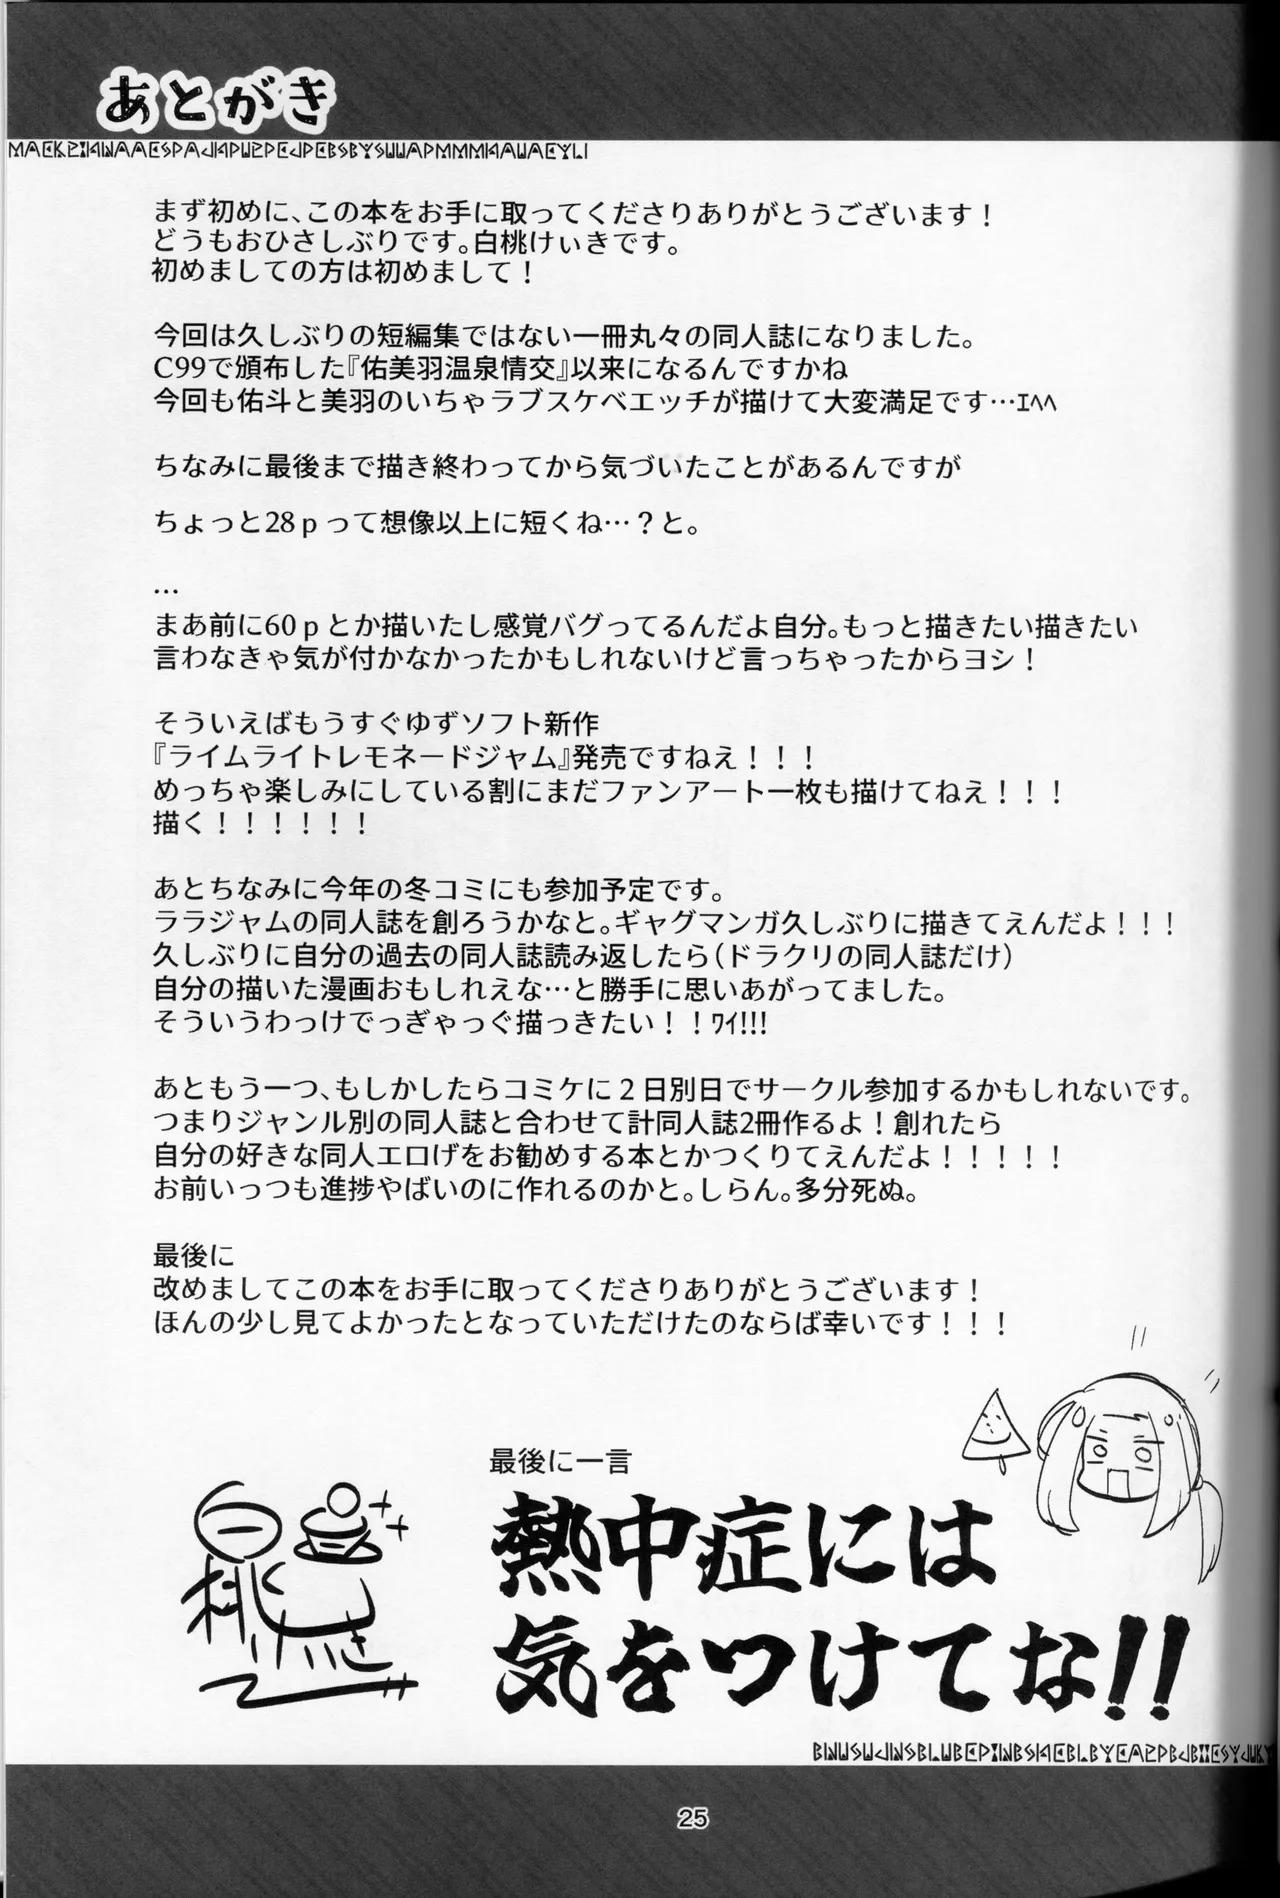 あとがき
まず初めに、この本をお手に取ってくださりありがとうございます！
どうもおひさしぶりです。白桃けぃきです。
初めましての方は初めまして！
今回は久しぶりの短編集ではない一冊丸々の同人誌になりました。
C99で頒布した『佑美羽温泉情交』以来になるんですかね
今回も佑斗と美羽のいちゃラブスケベエッチが描けて大変満足です…ｴ^^
ちなみに最後まで描き終わってから気づいたことがあるんですが
ちょっと28ｐって想像以上に短くね…？と。
…
まあ前に60ｐとか描いたし感覚バグってるんだよ自分。もっと描きたい描きたい
言わなきゃ気が付かなかったかもしれないけど言っちゃったからヨシ！
そういえばもうすぐゆずソフト新作
『ライムライトレモネードジャム』発売ですねえ！！！
めっちゃ楽しみにしている割にまだファンアート一枚も描けてねえ！！！
描く！！！！！！
あとちなみに今年の冬コミにも参加予定です。
ララジャムの同人誌を創ろうかなと。ギャグマンガ久しぶりに描きてえんだよ！！！
久しぶりに自分の過去の同人誌読み返したら（ドラクリの同人誌だけ）
自分の描いた漫画おもしれえな…と勝手に思いあがってました。
そういうわっけでっぎゃっぐ描っきたい！！ﾜｲ!!!
あともう一つ、もしかしたらコミケに２日別日でサークル参加するかもしれないです。
つまりジャンル別の同人誌と合わせて計同人誌2冊作るよ！創れたら
自分の好きな同人エロげをお勧めする本とかつくりてえんだよ！！！！！
お前いっつも進捗やばいのに作れるのかと。しらん。多分死ぬ。
最後に
改めましてこの本をお手に取ってくださりありがとうございます！
ほんの少し見てよかったとなっていただけたのならば幸いです！！！
最後に一言
熱中症には
気をつけてな!!
25